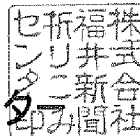 株式会社
福井新聞
折りこみ
センター印